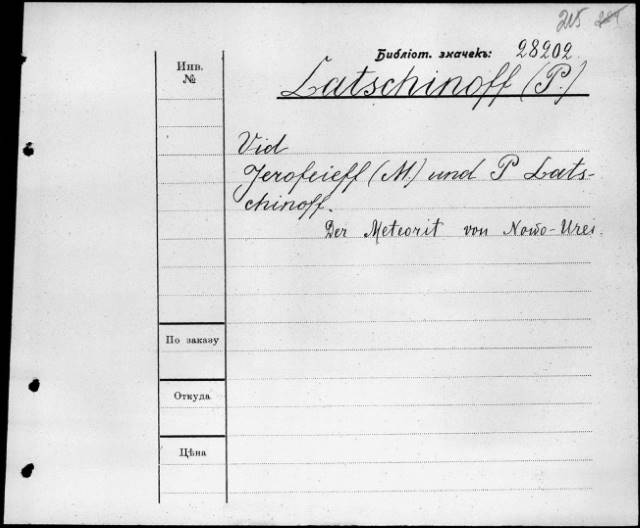 215
Библіот. значекъ: 28202.
Latschinoff (P.)
Инв.
№
Vid
Jerofeieff (M.) und P Lats-
chinoff.
Der Meteorit von Nowo-Urei.
По заказу
Откуда
Цѣна